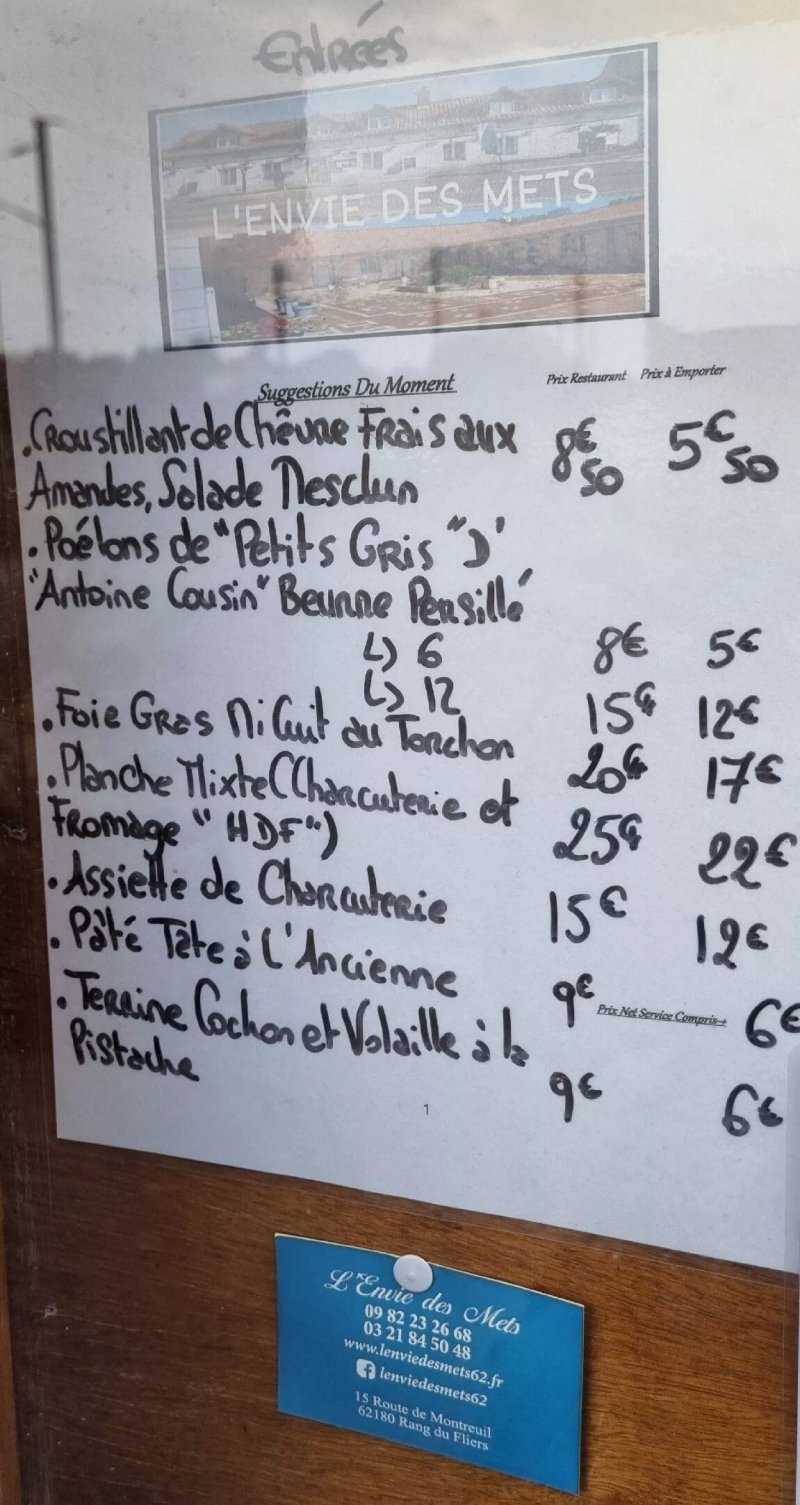 Entrées
L'ENVIE DES METS
Suggestions Du Moment Prix Restaurant Prix à Emporter
. Croustillant de Chêvre Frais aux 8€50 5€50
Amandes, Salade Mesclun
. Poélons de "Petits Gris" D'
"Antoine Cousin" Beurre Persillé
↳ 6 8€ 5€
↳ 12 15€ 12€
. Foie Gras Mi Cuit au Torchon 20€ 17€
. Planche Mixte (Charcuterie et 25€ 22€
Fromage "HDF")
. Assiette de Charcuterie 15€ 12€
. Pâté Tête à l'Ancienne 9€ 6€
Prix Net Service Compris
. Terrine Cochon et Volaille à la 9€ 6€
Pistache
1
L'Envie des Mets
09 82 23 26 68
03 21 84 50 48
www.lenviedesmets62.fr
f lenviedesmets62
15 Route de Montreuil
62180 Rang du Fliers